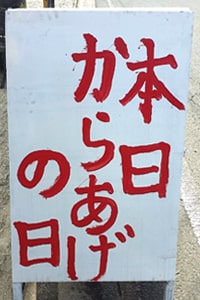 本日
からあげ
の日